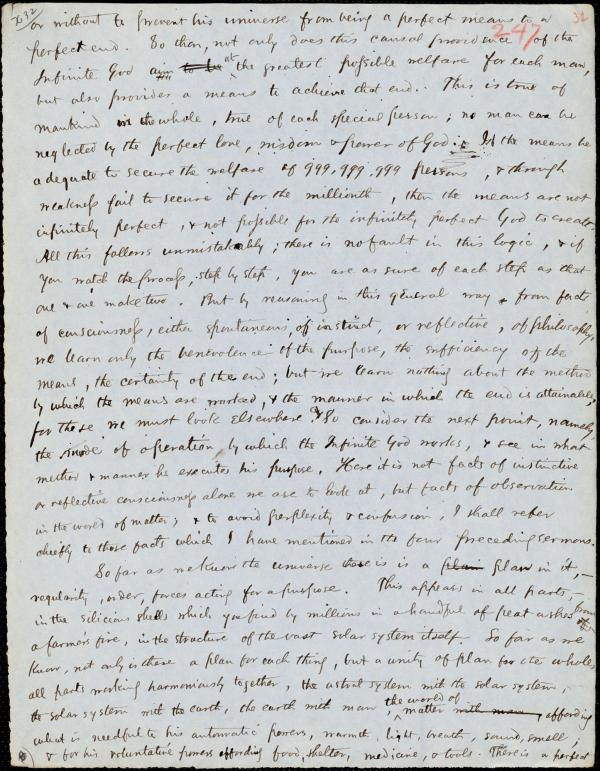 32
247
or without to prevent his universe from being a perfect means to a
perfect end. So then, not only does this causal providence of the
Infinite God aim to be at the greatest possible welfare for each man,
but also provides a means to achieve that end. This is true of
mankind in the whole, true of each special person; no man can be
neglected by the perfect love, wisdom & power of God. If the means be
adequate to secure the welfare of 999,999,999 persons, & through
weakness fail to secure it for the millionth, then the means are not
infinitely perfect, & not possible for the infinitely perfect God to create.
All this follows unmistakably; there is no fault in this logic, & if
you watch the process, step by step, you are as sure of each step as that
one & one make two. But by reasoning in this general way, from facts
of consciousness, either spontaneous, of instinct, or reflective, of philosophy,
we learn only the benevolence of the purpose, the sufficiency of the
means, the certainty of the end; but we learn nothing about the method
by which the means are worked, & the manner in which the end is attainable;
for these we must look elsewhere. So consider the next point, namely,
the mode of operation, by which the Infinite God works, & see in what
method & manner he executes his purpose. Here it is not facts of instinctive
or reflective consciousness alone we are to look at, but facts of observation
in the world of matter; & to avoid perplexity & confusion, I shall refer
chiefly to those facts which I have mentioned in the four preceding sermons.
So far as we know the universe there is a plan plan in it,—
regularity, order, forces acting for a purpose. This appears in all parts,—
in the silicious shells which you find by millions in a handful of peat ashes from
a farmer's fire, in the structure of the vast solar system itself. So far as we
know, not only is there a plan for each thing, but a unity of plan for the whole,
all parts working harmoniously together, the astral system with the solar system,
the solar system with the earth, the earth with man, the world of matter with man, affording
what is needful to his automatic powers, warmth, light, breath, sound, smell;
& for his voluntative powers affording food, shelter, medicine, & tools. There is a perfect